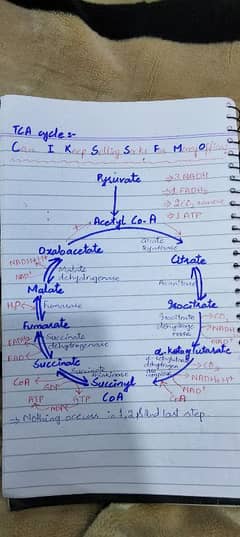 TCA cycle :-
Can I Keep Selling Socks For Money Officer
Pyruvate
→ 3 NADH
→ 1 FADH₂
→ 2 CO₂
→ 1 ATP
Acetyl Co-A
Oxaloacetate
Citrate synthase
Citrate
NADH+H⁺
NAD⁺
Malate dehydrogenase
Aconitase
Malate
Isocitrate
H₂O
Fumarase
Isocitrate dehydrogenase
CO₂
NADH
NAD⁺
Fumarate
α-ketoglutarate
FADH₂
FAD
Succinate dehydrogenase
α-ketoglutarate dehydrogenase complex
CO₂
NADH+H⁺
NAD⁺
CoA
Succinate
Succinate thiokinase
Succinyl CoA
CoA
GDP
GTP
ATP
ADP
→ Nothing occurs in 1, 2 & last step